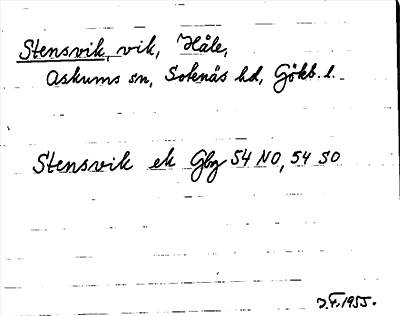 Stensvik, vik, Håle,
Askums sn, Sotenäs hd, Götb. l.
Stensvik ek Gbg 54 NO, 54 SO
J.F. 1955.